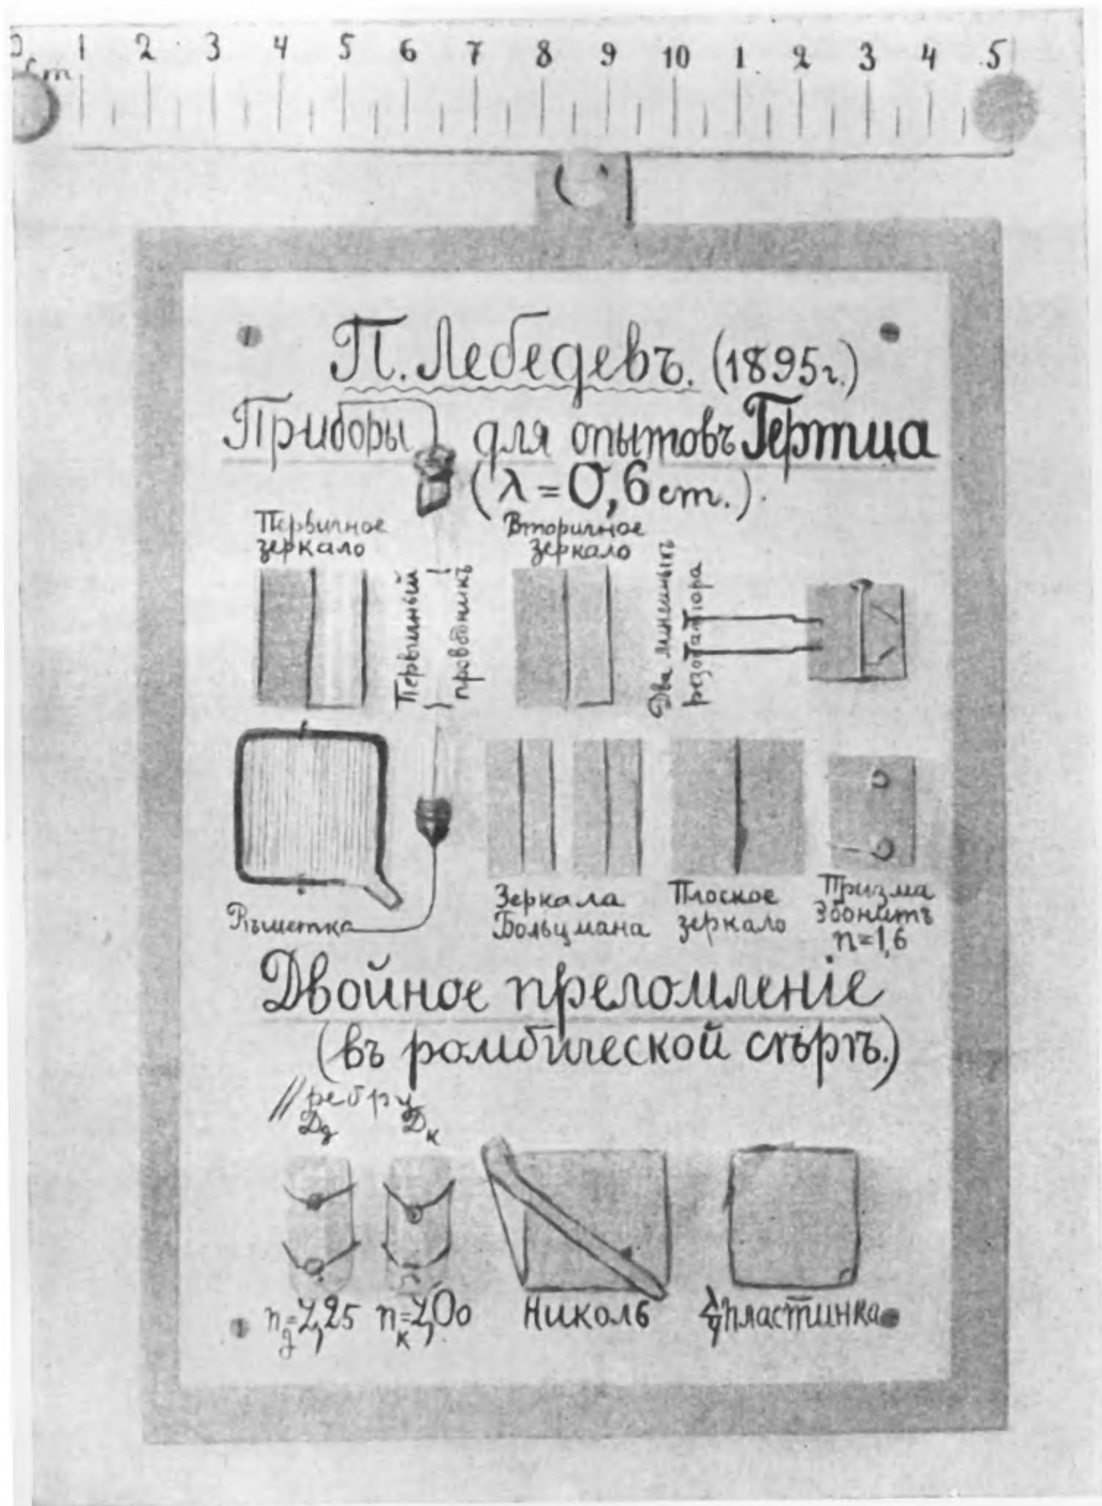 0 1 2 3 4 5 6 7 8 9 10 1 2 3 4 5
cm
П. Лебедевъ. (1895г.)
Приборы для опытовъ Гертца
(λ = 0,6 cm.).
Первичное
зеркало
Первичный
проводникъ
Вторичное
зеркало
Два линейныхъ
резонатора
Рѣшетка
Зеркала
Больцмана
Плоское
зеркало
Призма
Эбонитъ
n=1,6
Двойное преломленіе
(въ ромбической сѣрѣ.)
// ребру
Dg Dк
ng=2,25 nк=2,00 Николь λ/4 пластинка